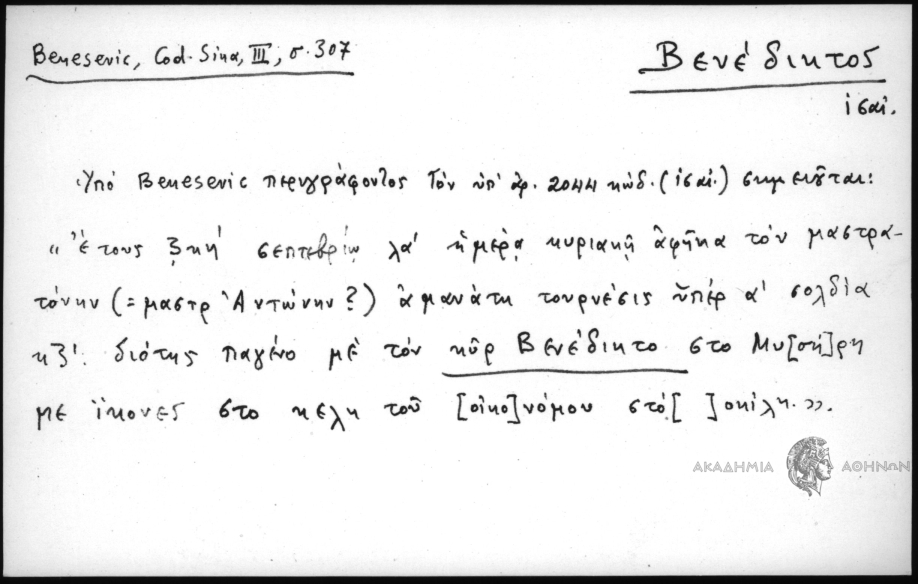 Benesevic, Cod. Sina, III, σ. 307
Βενέδικτος
ἱσαί.
Ὑπό Benesevic περιγράφοντος τόν ὑπ' ἀρ. 2044 κώδ. (ἱσαί.) σημειοῦται:
"Ἔτους ζκή σεπτεβρίῳ λα' ἡμέρᾳ κυριακῇ ἀφῆκα τόν μαστρα-
τόνην (=μαστρ Ἀντώνην?) ἀμανάτι τουρνέσις ὑπέρ α' σολδία
κζ'. διότης παγένο μὲ τόν κῦρ Βενέδικτο στο Μυ[σή]ρη
με ἴκονες στο κελη τοῦ [οἰκο]νόμου στό[ ]οκίλη.».
ΑΚΑΔΗΜΙΑ ΑΘΗΝΩΝ